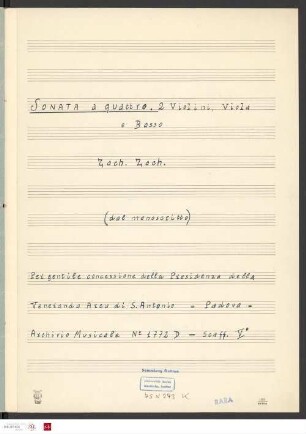 SONATA a quattro, 2 Violini, Viola
e Basso
Zach. Zach.
(dal manoscritto)
Per gentile concessione della Presidenza della
Veneranda Arca di S. Antonio - Padova -
Archivio Musicale Nº 1772 D - Scaff. Vº